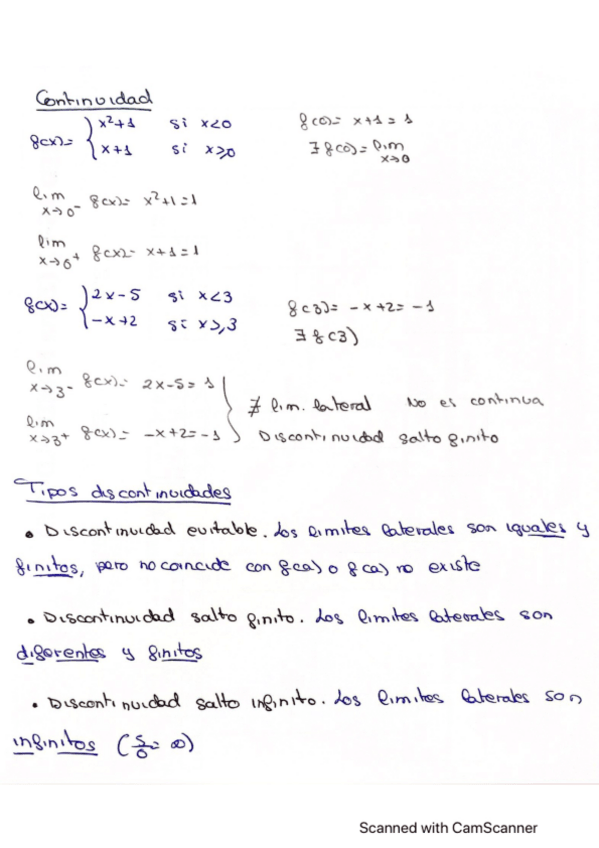 Continuidad
f(x)= { x²+1 si x<0
x+1 si x≥0
f(0)= x+1=1
∃ f(0)= lim x→0
lim x→0⁻ f(x)= x²+1=1
lim x→0⁺ f(x)= x+1=1
f(x)= { 2x-5 si x<3
-x+2 si x≥3
f(3)= -x+2= -1
∃ f(3)
lim x→3⁻ f(x)= 2x-5=1
lim x→3⁺ f(x)= -x+2=-1
∄ lim. lateral No es continua
Discontinuidad salto finito
Tipos discontinuidades
• Discontinuidad evitable. Los limites laterales son iguales y
finitos, pero no coincide con f(a) o f(a) no existe
• Discontinuidad salto finito. Los limites laterales son
diferentes y finitos
• Discontinuidad salto infinito. Los limites laterales son
infinitos (5/0= ∞)
Scanned with CamScanner